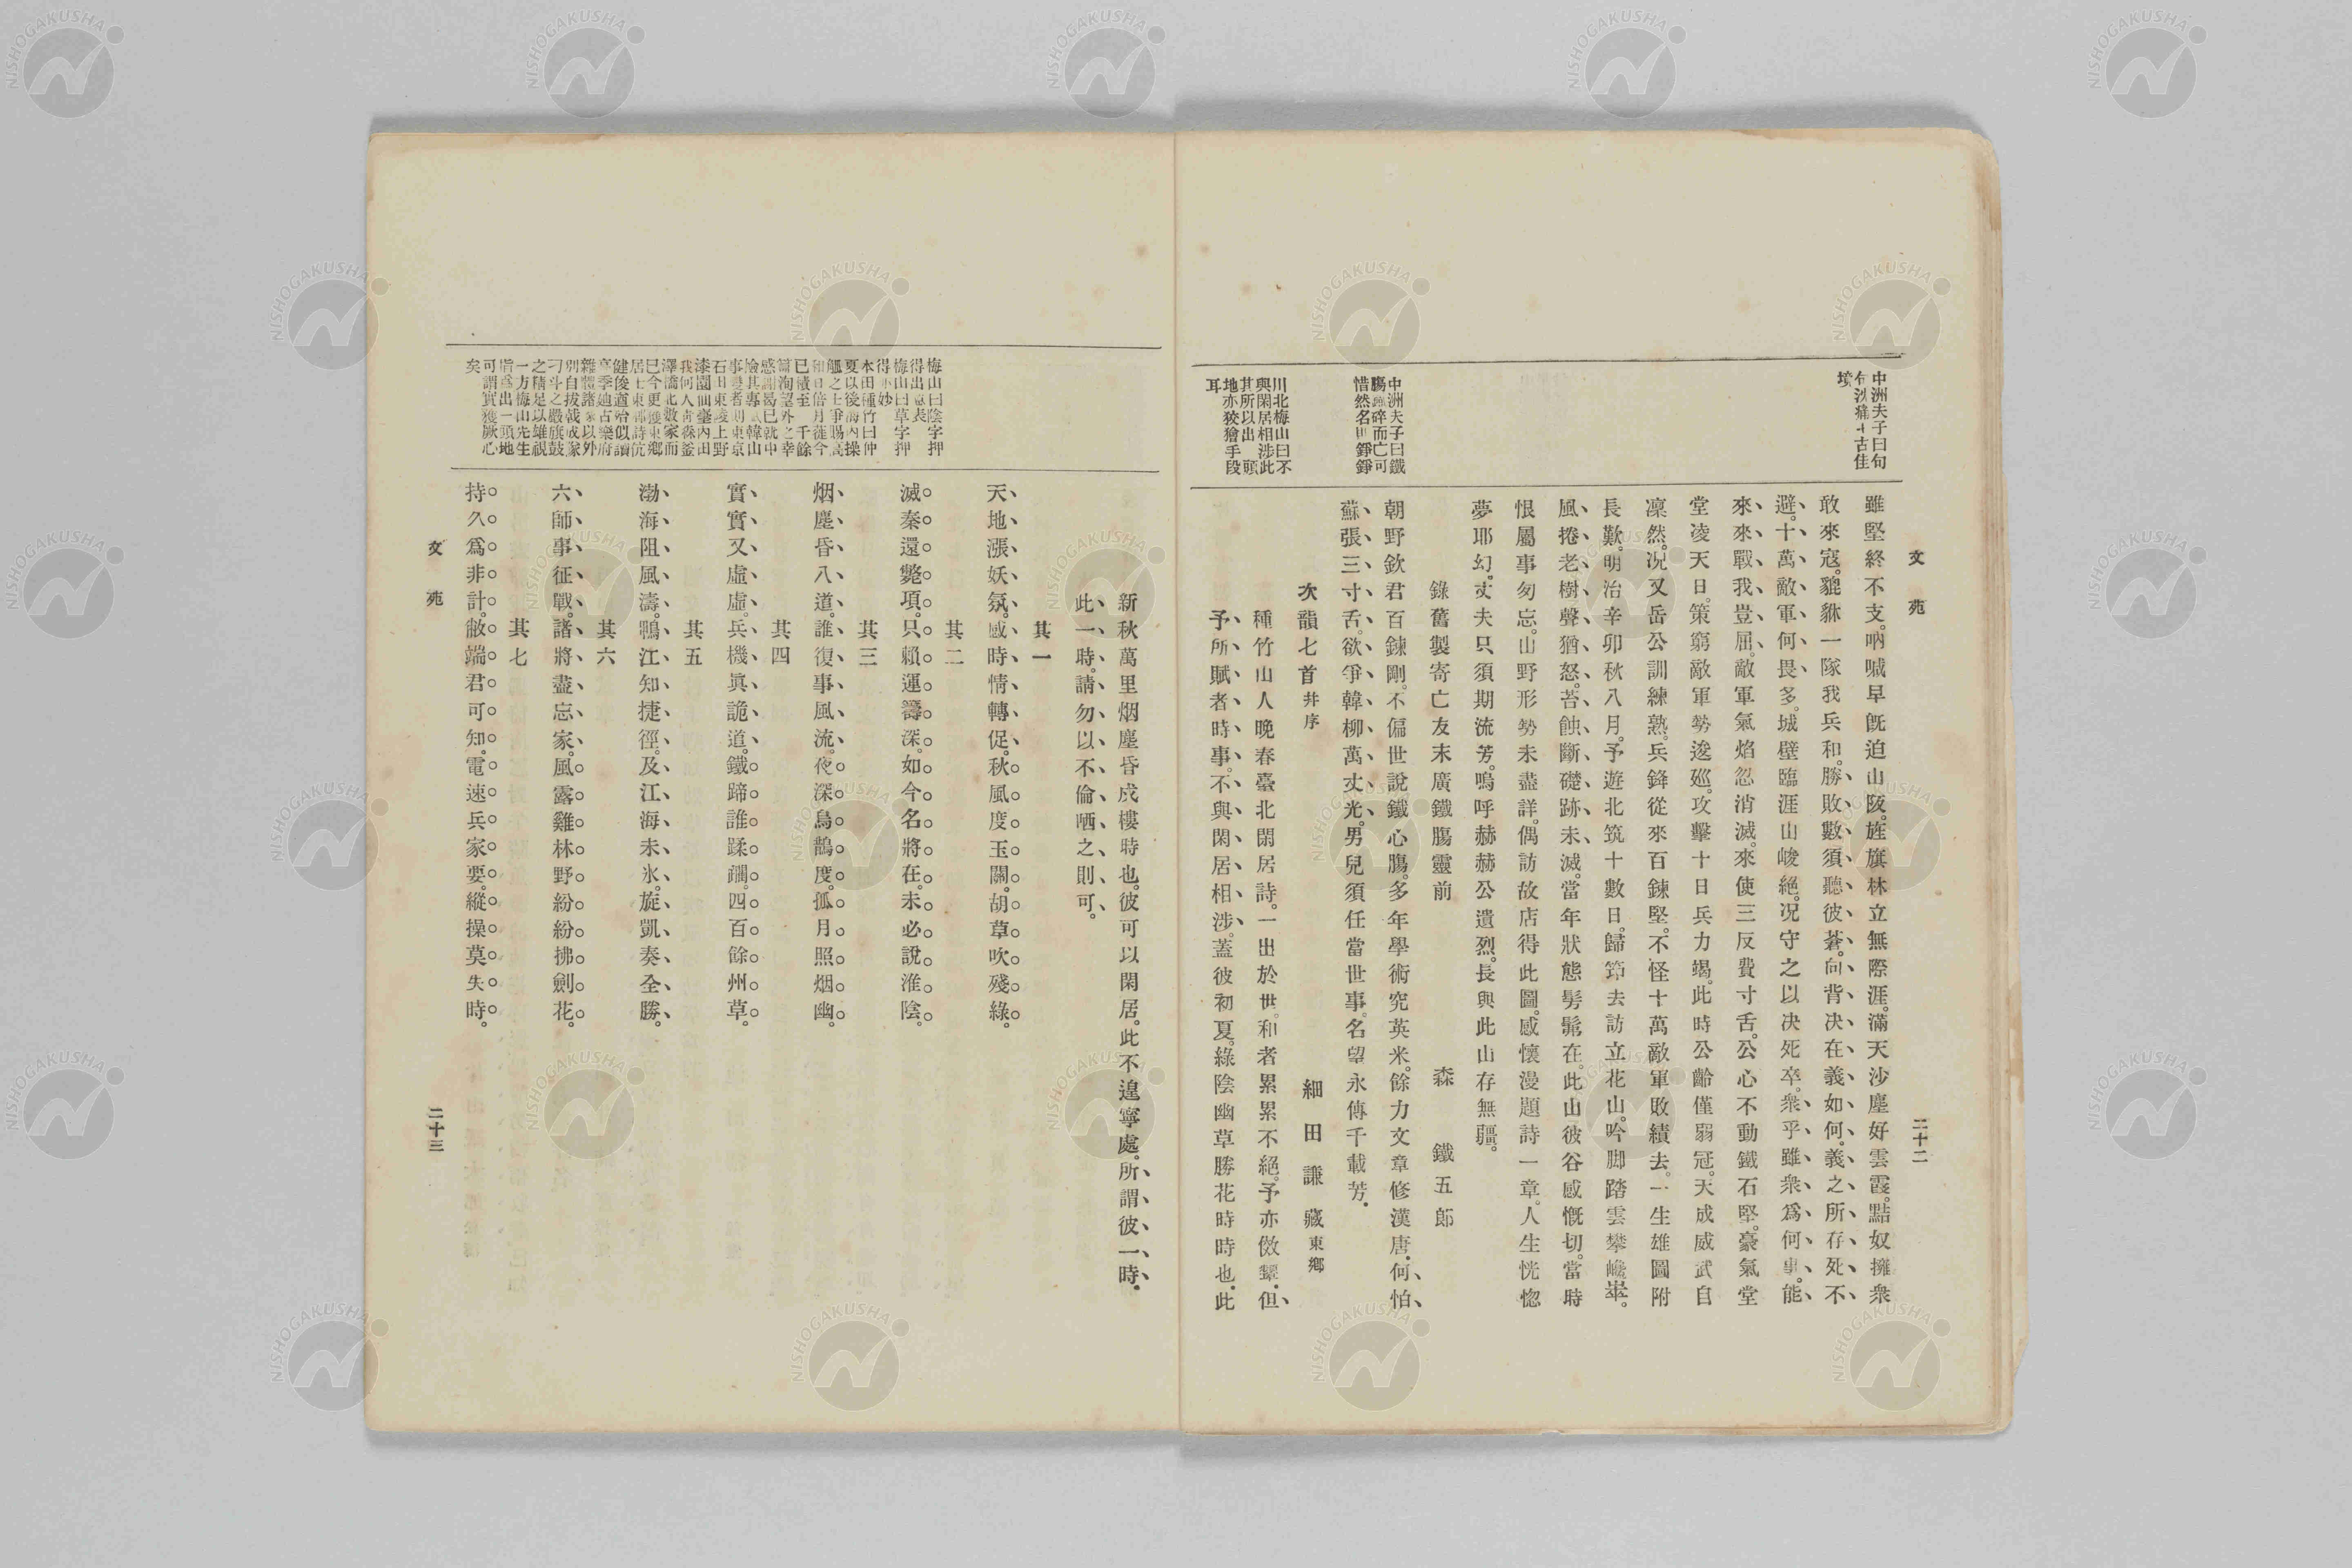 文苑
二十二
中洲夫子曰句
句沈痛千古佳
境
中洲夫子曰鐵
腸碎而亡可
惜然名世錚錚
川北梅山曰不
與閑居相涉此
其所以出一頭
地亦狡獪手段
耳
雖堅終不支。吶喊早既迫山阪。旌旗林立無際涯。滿天沙塵好雲霞。黠奴擁衆
敢來寇。貔貅一隊我兵和。勝敗數須聽彼蒼。向背决在義如何。義之所存死不
避。十萬敵軍何畏多。城壁臨涯山峻絕。況守之以决死卒。衆乎雖衆爲何事。能
來來戰我豈屈。敵軍氣焰忽消滅。來使三反費寸舌。公心不動鐵石堅。豪氣堂
堂凌天日。策窮敵軍勢逡巡。攻擊十日兵力竭。此時公齡僅弱冠。天成威武自
凜然。況又岳公訓練熟。兵鋒從來百鍊堅。不怪十萬敵軍敗績去。一生雄圖附
長歎。明治辛卯秋八月。予遊北筑十數日。歸節去訪立花山。吟脚踏雲攀巉崒。
風捲老樹聲猶怒。苔蝕斷礎跡未滅。當年狀態髣髴在。此山彼谷感慨切。當時
恨屬事匆忘。山野形勢未盡詳。偶訪故店得此圖。感懷漫題詩一章。人生恍惚
夢耶幻。丈夫只須期流芳。嗚呼赫赫公遺烈。長與此山存無疆。
錄舊製寄亡友末廣鐵腸靈前 森鐵五郎
朝野欽君百鍊剛。不偏世說鐵心腸。多年學術究英米。餘力文章修漢唐。何怕
蘇張三寸舌。欲爭韓柳萬丈光。男兒須任當世事。名望永傳千載芳。
次韻七首并序 細田謙藏東鄉
種竹山人晚春臺北閑居詩。一出於世。和者累累不絕。予亦傚顰。但
予所賦者時事。不與閑居相涉。蓋彼初夏。綠陰幽草勝花時時也。此
新秋萬里烟塵昏戍樓時也。彼可以閑居。此不遑寧處。所謂彼一時
此一時。請勿以不倫哂之則可。
其一
天地漲妖氛。感時情轉促。秋風度玉關。胡草吹殘綠。
其二
滅秦還斃項。只賴運籌深。如今名將在。未必說淮陰。
其三
烟塵昏八道。誰復事風流。夜深烏鵲度。孤月照烟幽。
其四
實實又虛虛。兵機眞詭道。鐵蹄誰蹂躙。四百餘州草。
其五
渤海阻風濤。鴨江知捷徑。及江海未氷。旋凱奏全勝。
其六
六師事征戰。諸將盡忘家。風露雞林野。紛紛拂劍花。
其七
持久爲非計。敝端君可知。電速兵家要。縱操莫失時。
梅山曰陰字押
得出意表
梅山曰草字押
得亦妙
本田種竹曰仲
夏以後海內操
觚之士爭賜高
和日倍月蓰今
已積至千餘
篇洵望外之幸
感謝曷已就中
險其專者韓山
事變者則東京
石田東陵上野
漆園仙臺內田
我何人青森釜
澤濱北數家而
已今更獲東鄉
居士東鄰詩伉
健俊遒殆似讀
高季迪古樂府
雜體諸家以外
別自拔戟成隊
刁斗之嚴旗鼓
之精足以雄視
一方梅山先生
皆爲出一頭地
可謂實獲厥心
矣
文苑
二十三